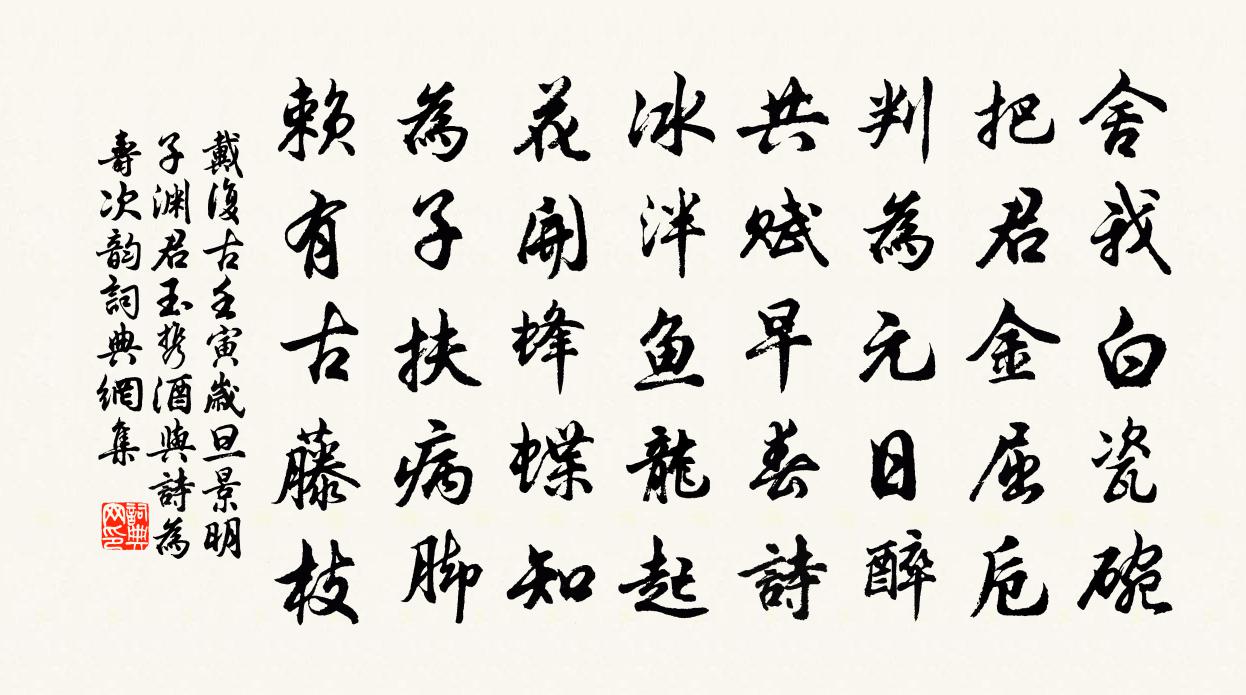 舍我白瓷碗
把君金屈卮
判為元日醉
共賦早春詩
冰泮鱼龍起
花開蜂蝶知
為子扶病脚
賴有古藤枝
戴復古壬寅歲旦景明
子渊君玉携酒與詩為
壽次韵詞典網集
詞典
网印